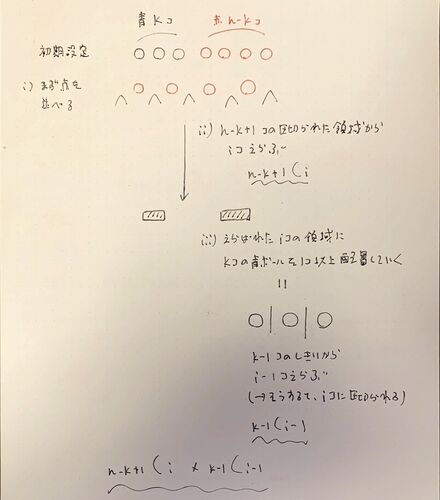 青kコ 赤n-kコ
初期設定
i) まず赤を
並べる
ii) n-k+1コの区切られた領域から
iコえらぶ
n-k+1Ci
iii) えらばれたiコの領域に
kコの青ボールを1コ以上配置していく
=
k-1コのしきりから
i-1コえらぶ
(→そうすると、iコに区切られる)
k-1Ci-1
n-k+1Ci × k-1Ci-1